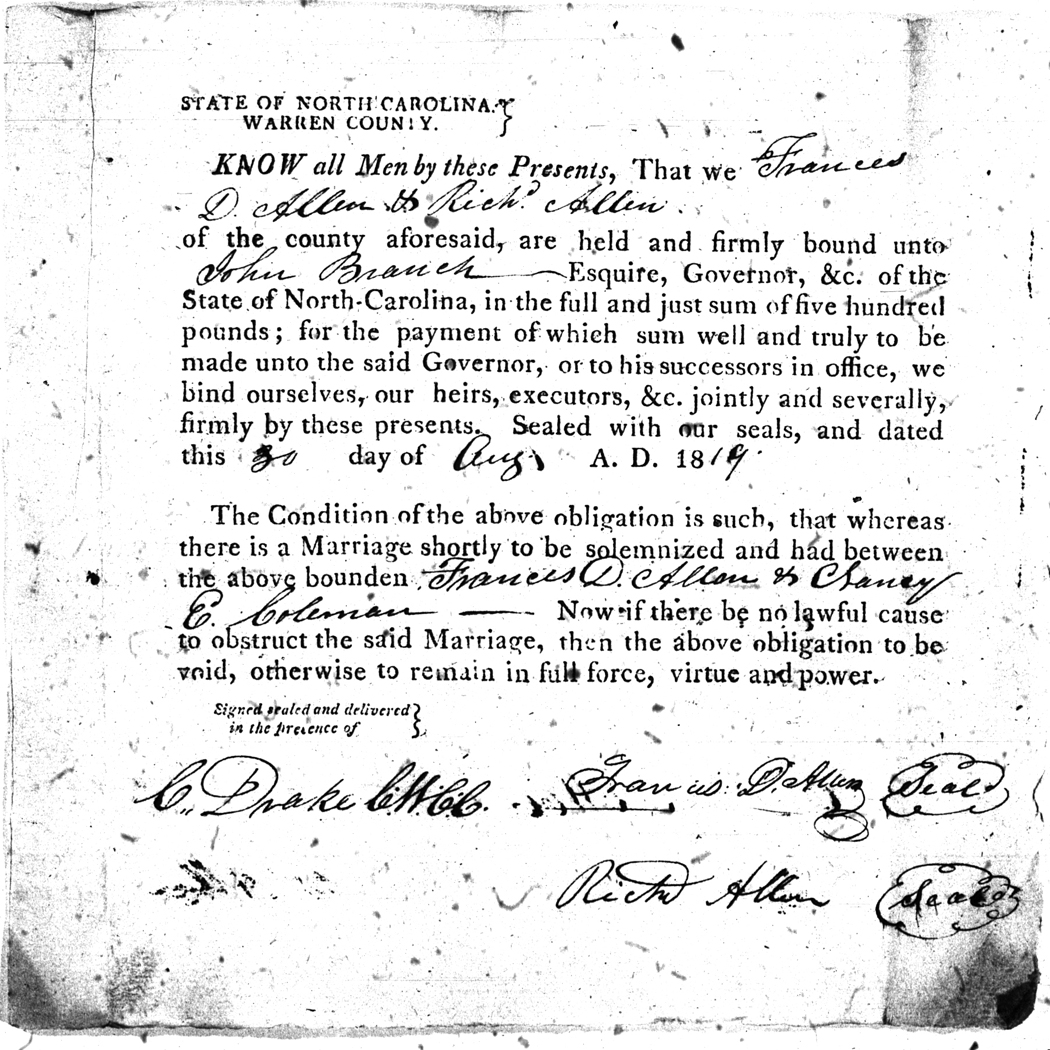 STATE OF NORTH CAROLINA.
WARREN COUNTY.
KNOW all Men by these Presents, That we Frances
D. Allen & Richd. Allen
of the county aforesaid, are held and firmly bound unto
John Branch Esquire, Governor, &c. of the
State of North-Carolina, in the full and just sum of five hundred
pounds; for the payment of which sum well and truly to be
made unto the said Governor, or to his successors in office, we
bind ourselves, our heirs, executors, &c. jointly and severally,
firmly by these presents. Sealed with our seals, and dated
this 30 day of Aug A. D. 1819
The Condition of the above obligation is such, that whereas
there is a Marriage shortly to be solemnized and had between
the above bounden Frances D. Allen & Chancy
E. Coleman Now if there be no lawful cause
to obstruct the said Marriage, then the above obligation to be
void, otherwise to remain in full force, virtue and power.
Signed sealed and delivered
in the presence of
C. Drake C.W.C.C. Francis D. Allen Seal
Richd Allen Seal